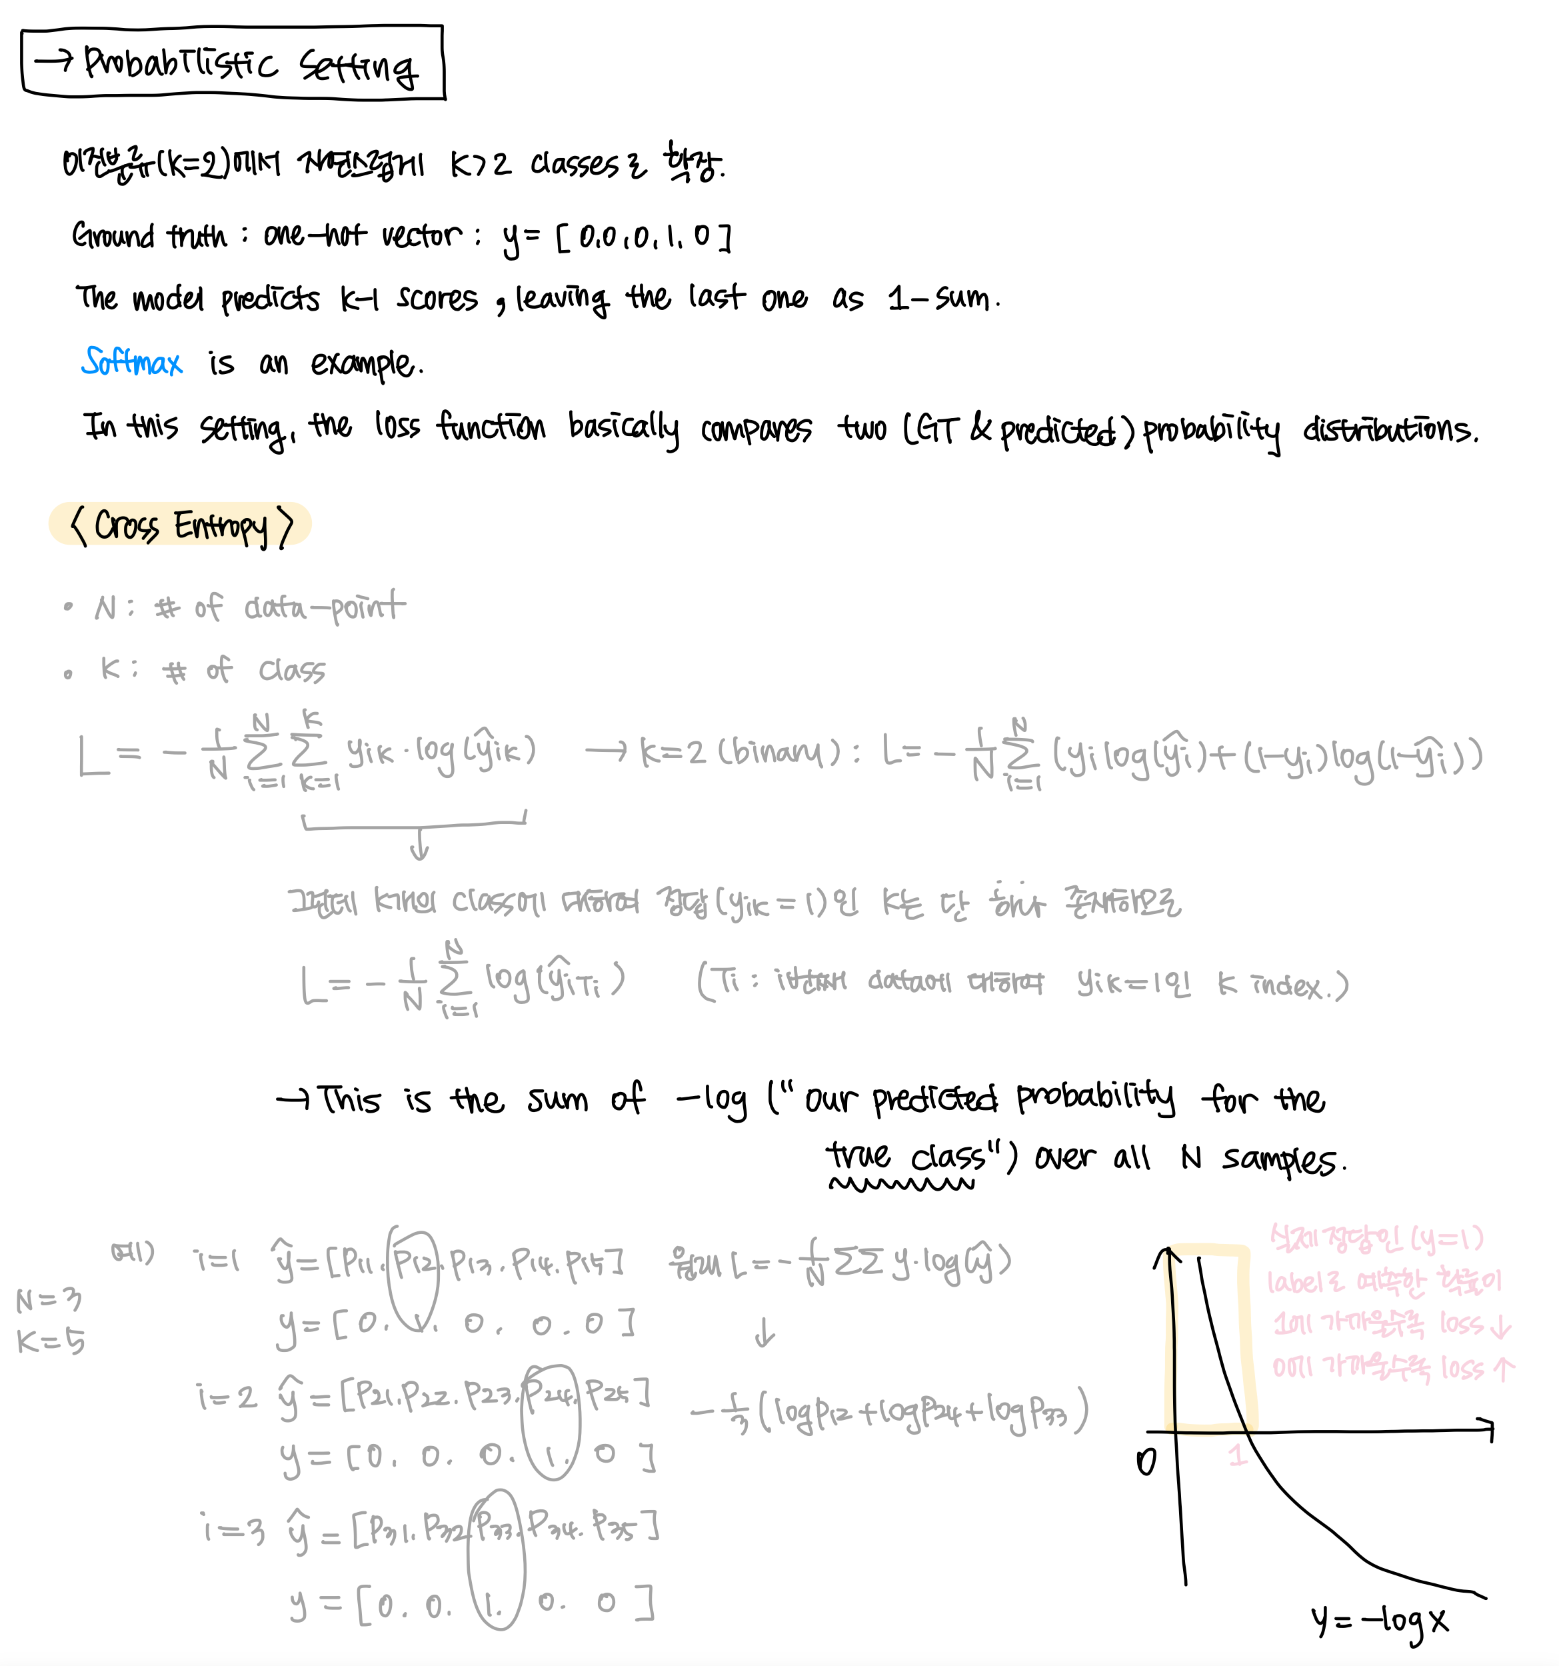 → Probabilistic Setting
이진분류(k=2)에서 자연스럽게 K>2 classes로 확장.
Ground truth : one-hot vector : y = [ 0.0.0.1.0 ]
The model predicts k-1 scores, leaving the last one as 1-sum.
Softmax is an example.
In this setting, the loss function basically compares two (GT & predicted) probability distributions.
<Cross Entropy>
• N : # of data-point
• K : # of class
L = - 1/N Σ_{i=1}^{N} Σ_{k=1}^{K} y_{ik} · log(ŷ_{ik}) → k=2 (binary) : L = - 1/N Σ_{i=1}^{N} (y_i log(ŷ_i) + (1-y_i) log(1-ŷ_i))
↓
그런데 k개의 class에 대하여 정답(y_{ik} = 1)인 K는 단 하나 존재하므로
L = - 1/N Σ_{i=1}^{N} log(ŷ_{iTi}) (Ti : i번째 data에 대하여 y_{ik}=1인 K index.)
→ This is the sum of -log ("our predicted probability for the
true class") over all N samples.
예1)
N = 3
K = 5
i=1 ŷ = [P11. P12. P13. P14. P15]
y = [ 0. 1. 0. 0. 0 ]
i=2 ŷ = [P21. P22. P23. P24. P25]
y = [0. 0. 0. 1. 0 ]
i=3 ŷ = [P31. P32. P33. P34. P35]
y = [0. 0. 1. 0. 0 ]
원래 L = - 1/N ΣΣ y · log(ŷ)
↓
- 1/3 (logP12 + logP24 + logP33)
실제 정답인 (y=1)
label로 예측한 확률이
1에 가까울수록 loss ↓
0에 가까울수록 loss ↑
0
1
y = -log x